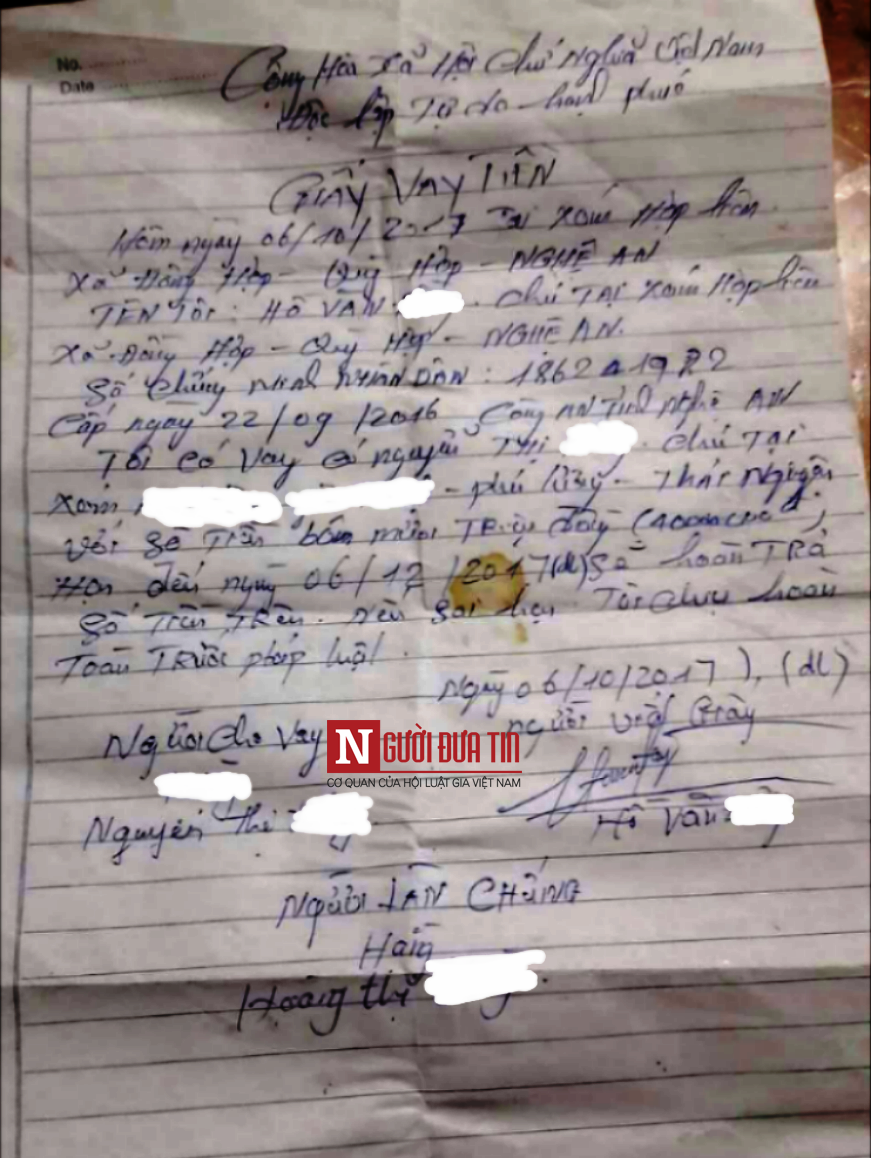 No. ............
Date ....................
Cộng Hòa Xã Hội Chủ Nghĩa Việt Nam
Độc lập Tự do - hạnh phúc
GIẤY VAY TIỀN
Hôm ngày 06/10/2017 Tại xóm Hợp liên
Xã Đồng Hợp - Quỳ Hợp - NGHỆ AN
TÊN TÔI: HỒ VĂN . Chú TẠI xóm Hợp liên
Xã Đồng Hợp - Quỳ Hợp - NGHỆ AN.
Số Chứng minh NHÂN DÂN:
Cấp ngày 22/09/2016 Công AN Tỉnh Nghệ AN
Tôi có vay cô nguyễn Thị . Chú TẠI
Xóm - phú - Thái Nguyên
với Số Tiền bốn mươi Triệu đồng
Hạn đến ngày 06/12/2017 (dl) Sẽ hoàn TRả
Số Tiền Trên. nếu sai hẹn Tôi chịu hoàn
Toàn Trước pháp luật.
Ngày 06/10/2017), (dl)
Người Cho Vay
người viết Giấy
NGƯỜI ĐƯA TIN
CƠ QUAN CỦA HỘI LUẬT GIA VIỆT NAM
Nguyễn thị
Hồ Văn
NGƯỜI LÀM CHỨNG
Hoàng thị